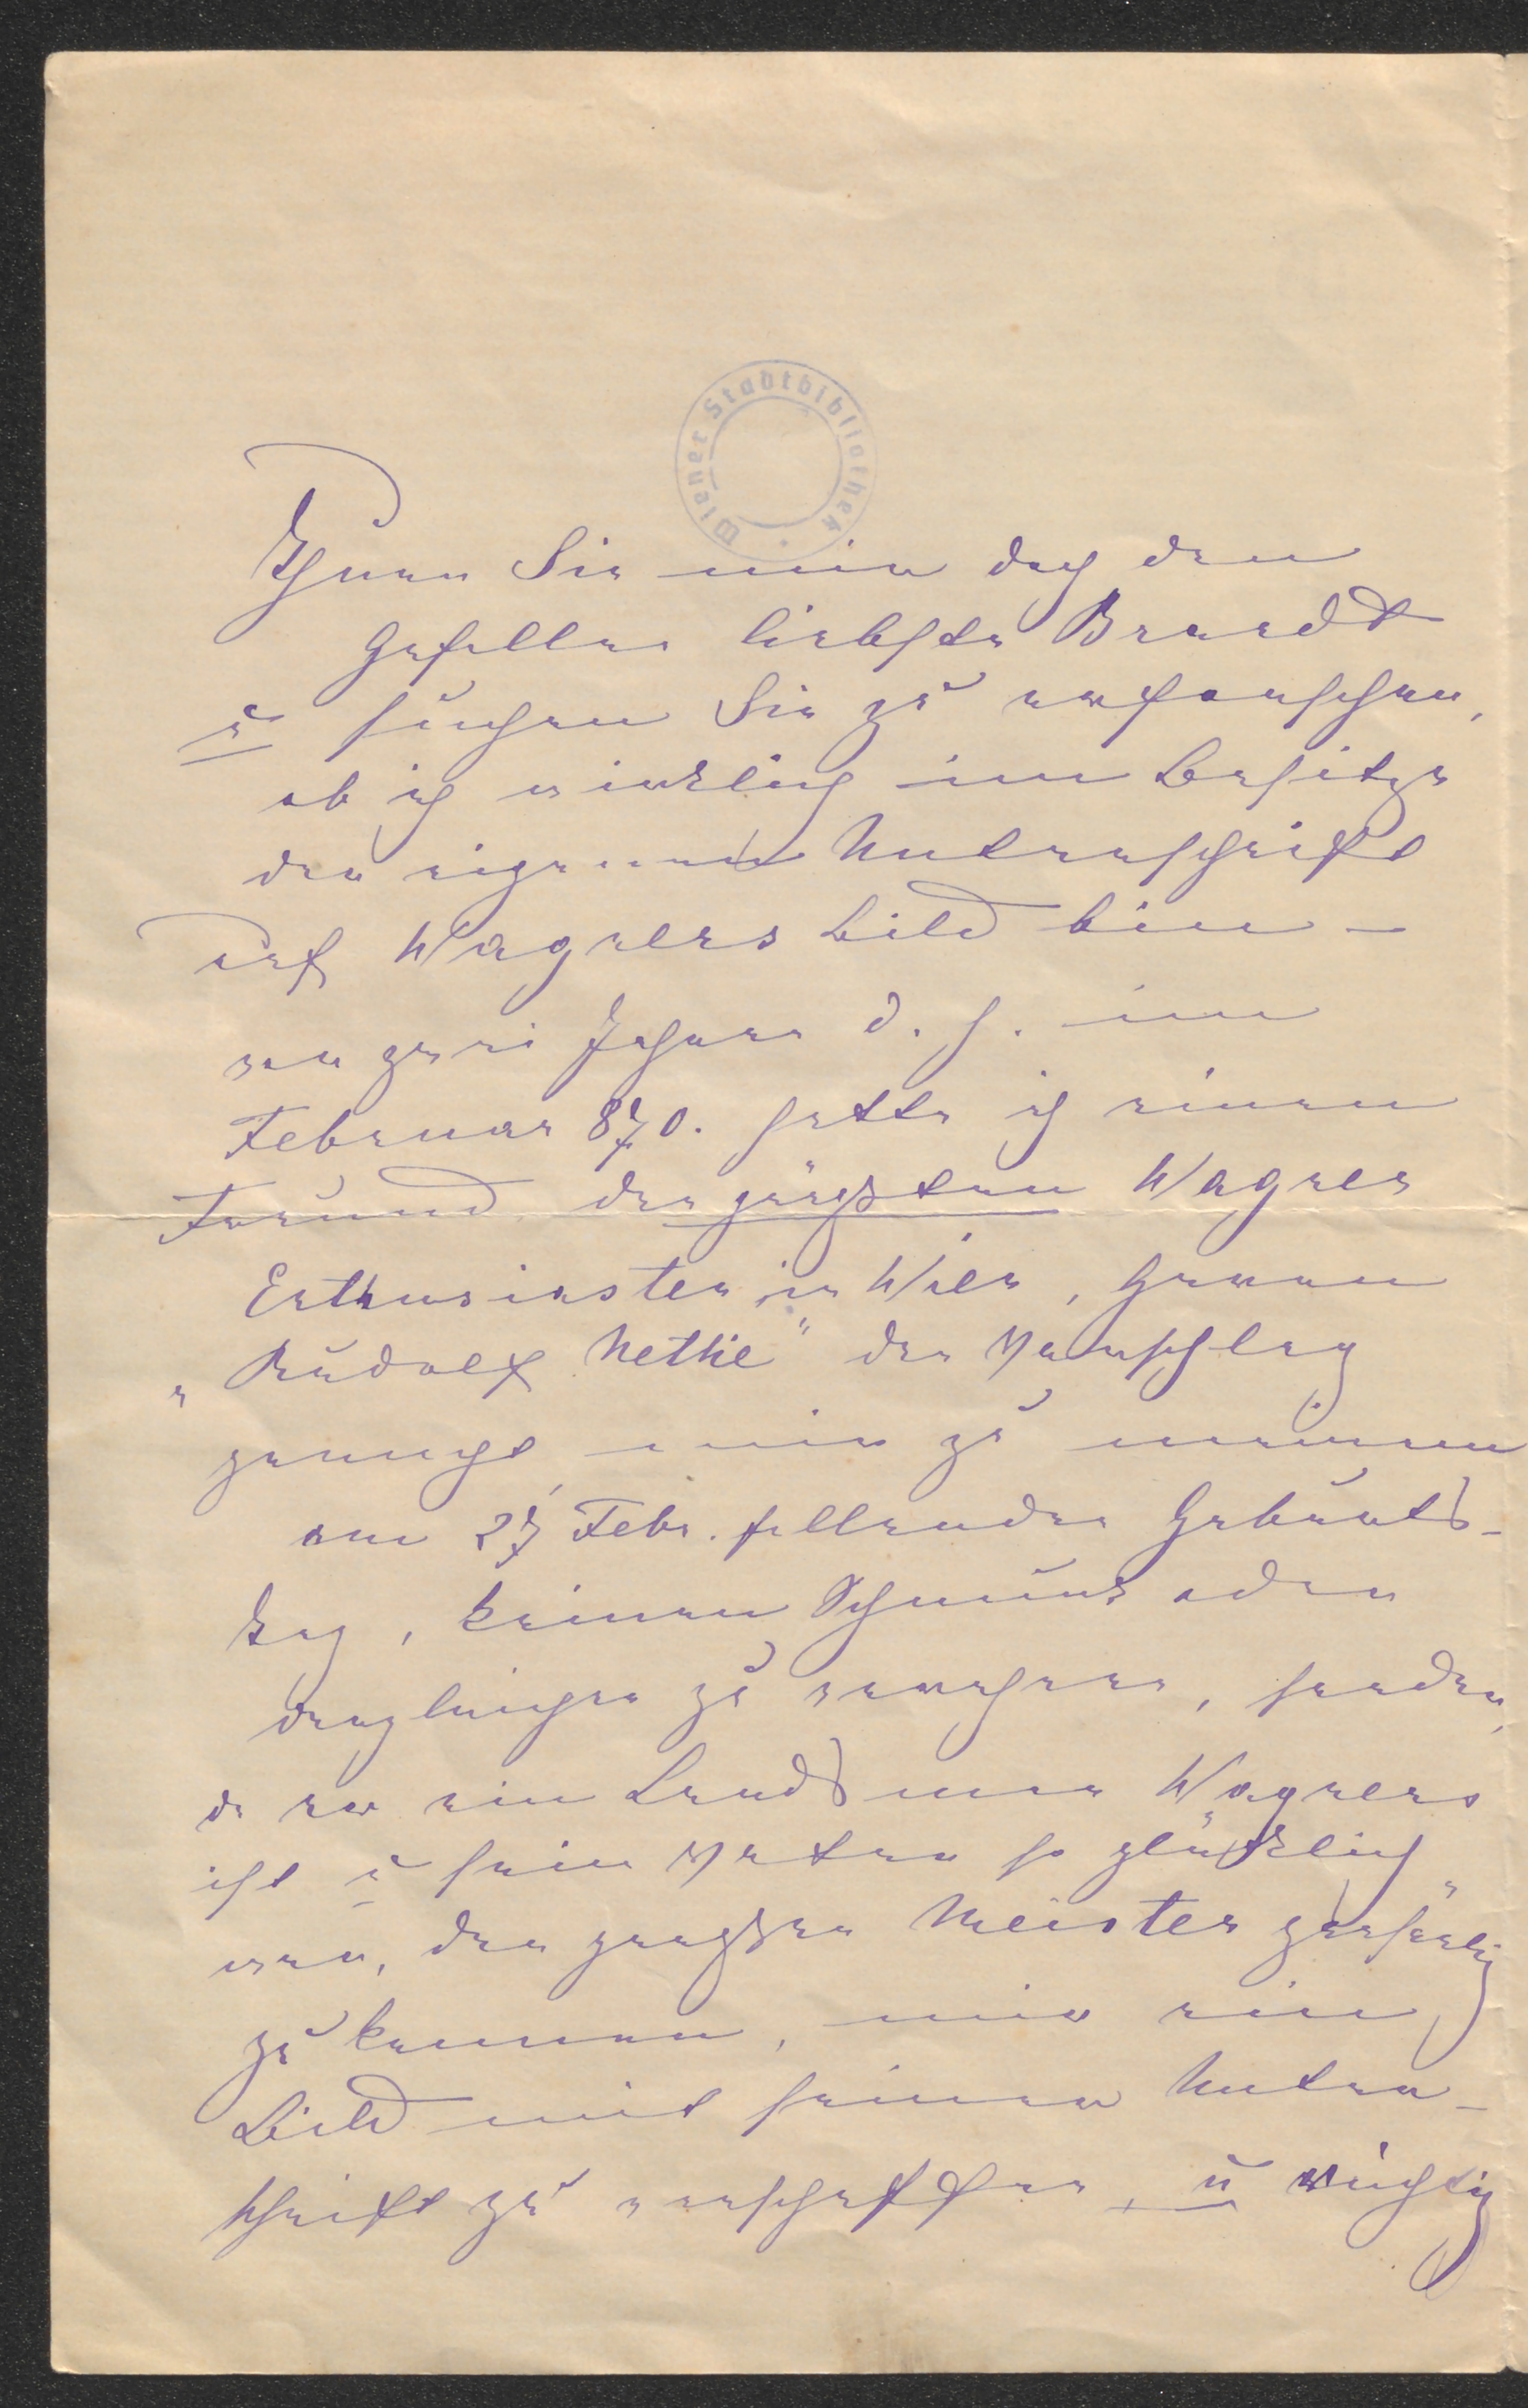 Wiener Stadtbibliothek
Thun Sie mir doch den
Gefallen liebster Brandt
u suchen Sie zu erforschen,
ob ich wirklich im Besitze
der eigenen Unterschrift
auf Wagners Bild bin –
vor zwei Jahren d. h. im
Februar 870. hatte ich einen
Freund der größten Wagner
Enthusiasten in Wien, Herrn
„Rudolf Nethe" den Vorschlag
gemacht, mir zu meinem
am 27 Febr. fallenden Geburts-
tag, keinen Schmuck oder
dergleichen zu verehren, sondern,
da er ein Landsmann Wagners
ist u sein Vater so glücklich
war, den großen Meister persönlich
zu kennen, mir ein
Bild mit seiner Unter-
schrift zu verschaffen, u richtig